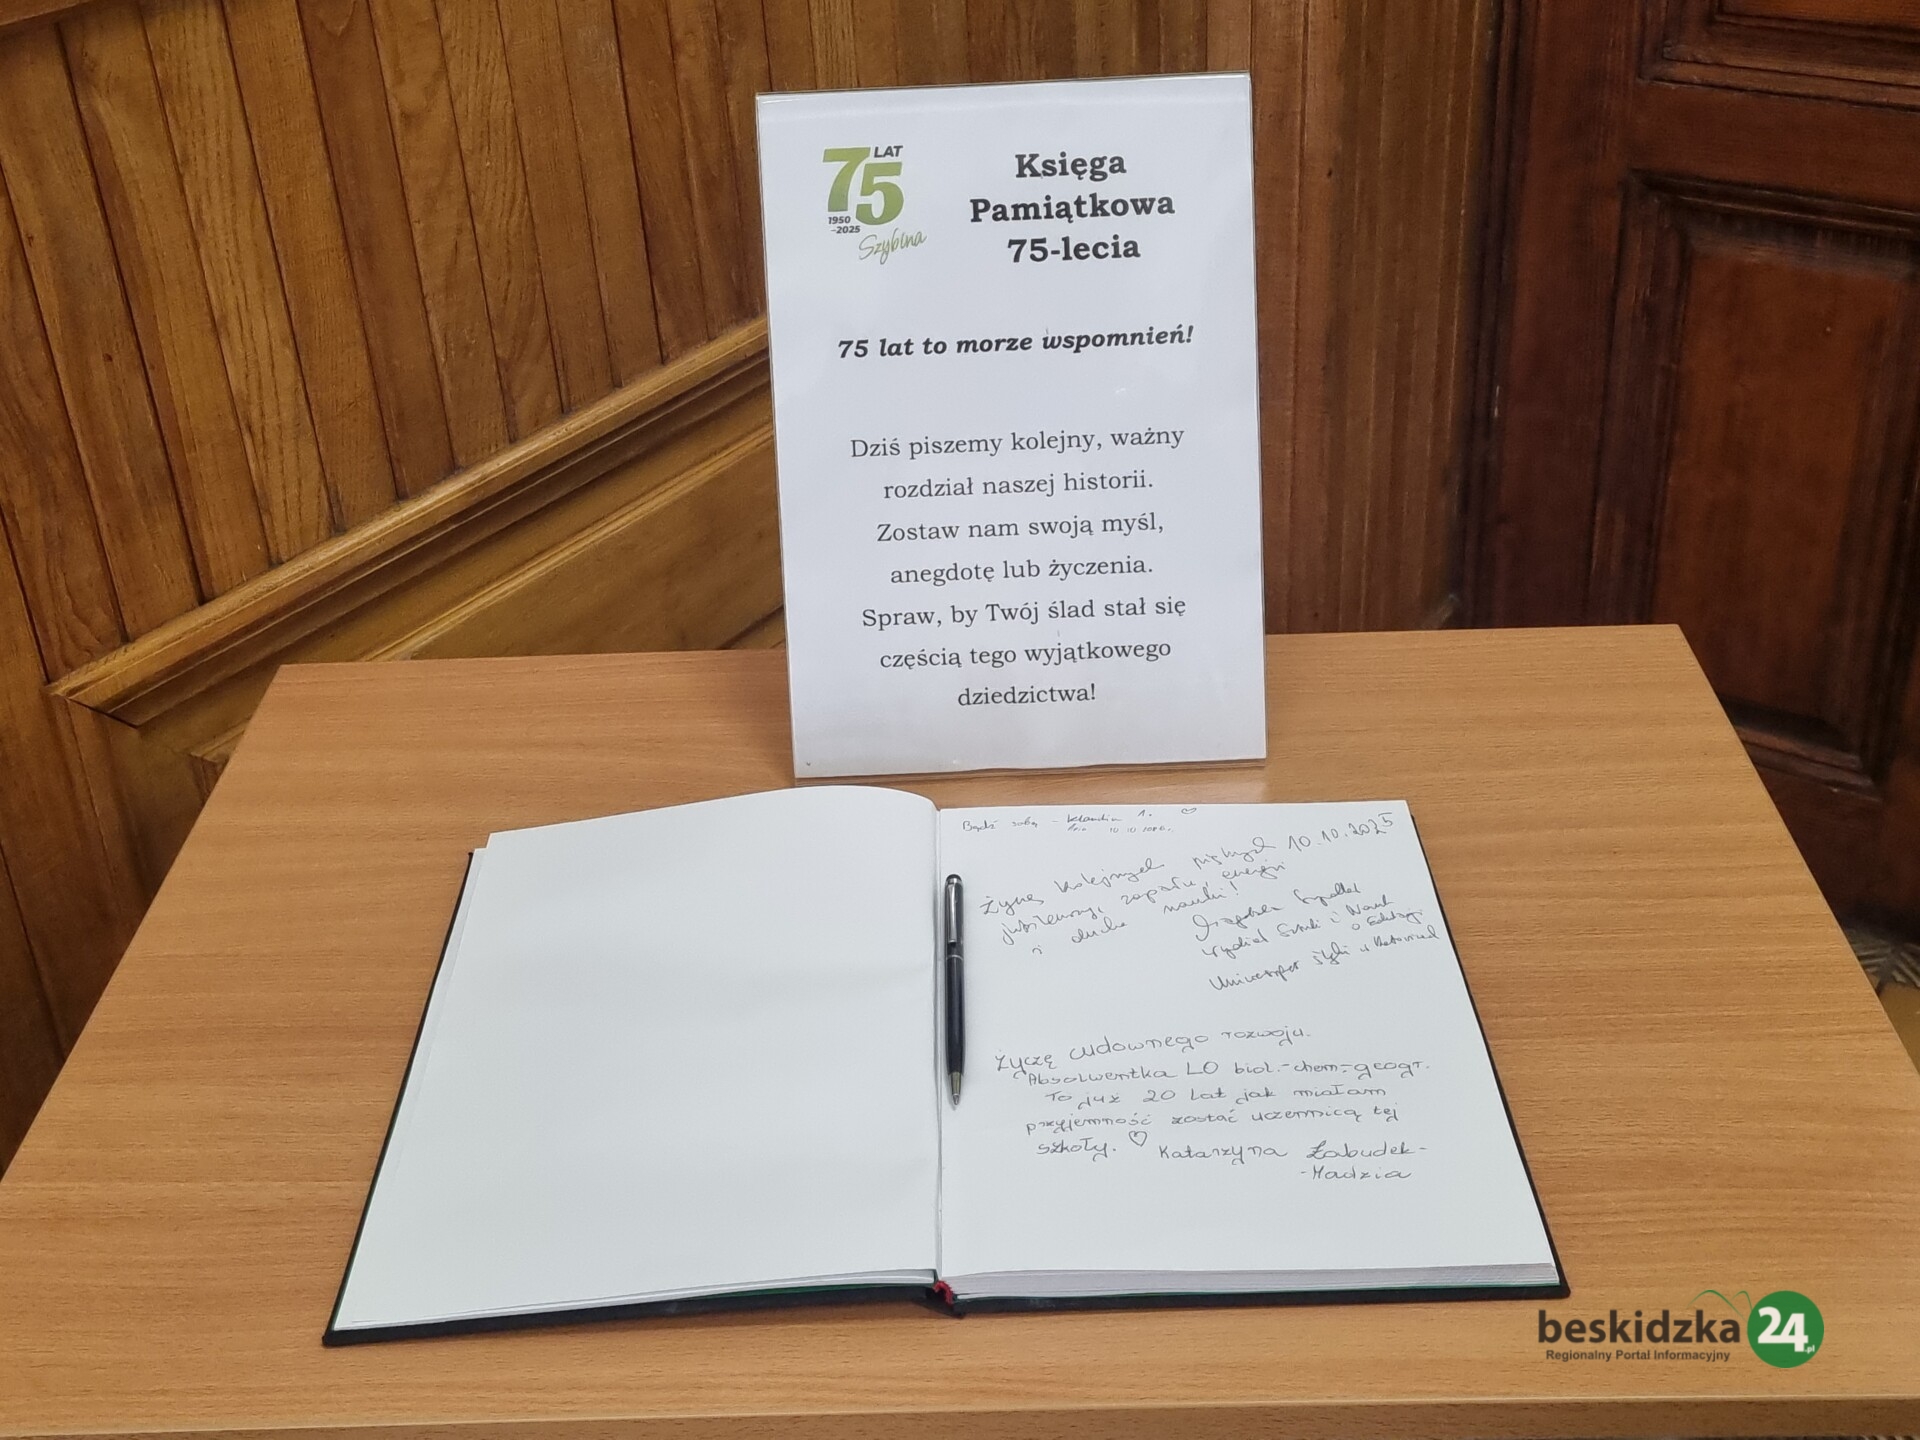 75 LAT
1950
-2025
Szybina
Księga
Pamiątkowa
75-lecia
75 lat to morze wspomnień!
Dziś piszemy kolejny, ważny
rozdział naszej historii.
Zostaw nam swoją myśl,
anegdotę lub życzenia.
Spraw, by Twój ślad stał się
częścią tego wyjątkowego
dziedzictwa!
Bądź sobą -
10.10.2025
Życzę kolejnych pięknych
jubileuszy, zapału, energii
i ducha nauki!
Wydział Sztuki i Nauk
o Edukacji
Uniwersytet Śląski w Katowicach
Życzę cudownego rozwoju.
Absolwentka LO biol.-chem-geogr.
To już 20 lat jak miałam
przyjemność zostać uczennicą tej
szkoły. ♡ Katarzyna Żabudek-
-Madzia
beskidzka24.pl
Regionalny Portal Informacyjny